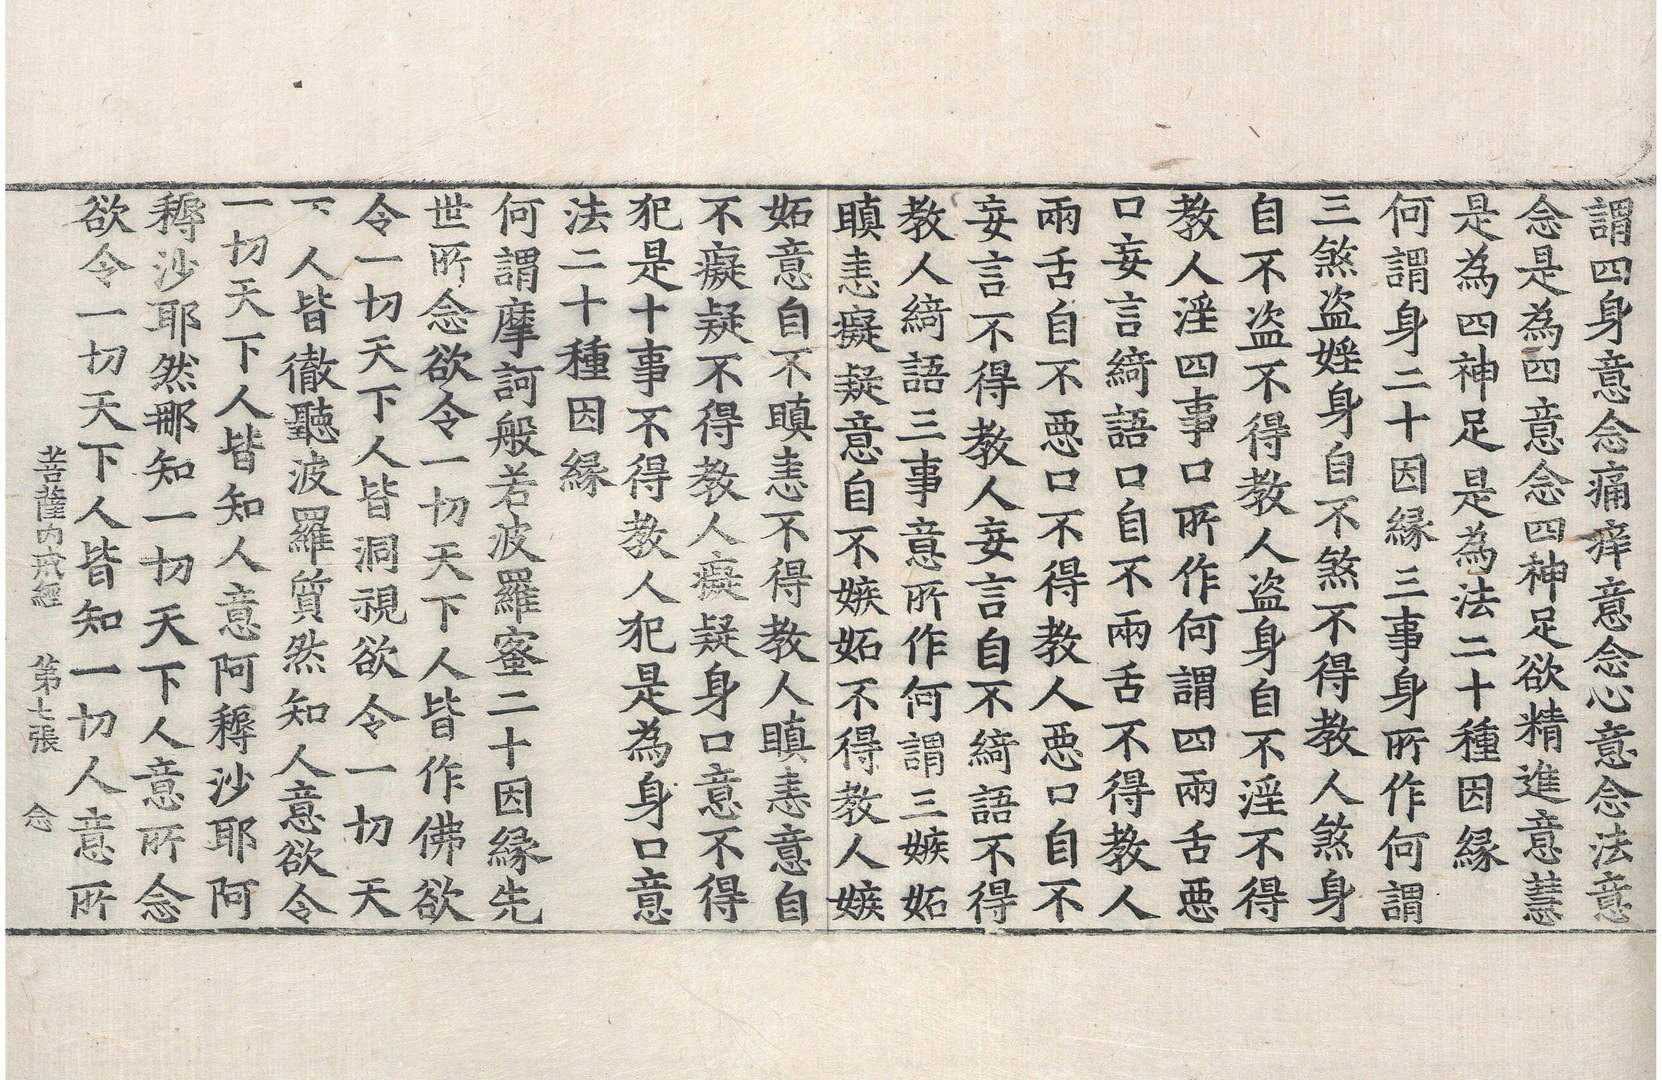 謂四身意念痛痒意念心意念法意
念是為四意念四神足欲精進意慧
是為四神足是為法二十種因縁
何謂身二十因縁三事身所作何謂
三煞盗婬身自不煞不得教人煞身
自不盗不得教人盗身自不淫不得
教人淫四事口所作何謂四兩舌惡
口妄言綺語口自不兩舌不得教人
兩舌自不惡口不得教人惡口自不
妄言不得教人妄言自不綺語不得
教人綺語三事意所作何謂三嫉妬
瞋恚癡疑意自不嫉妬不得教人嫉
妬意自不瞋恚不得教人瞋恚意自
不癡疑不得教人癡疑身口意不得
犯是十事不得教人犯是為身口意
法二十種因縁
何謂摩訶般若波羅蜜二十因縁先
世所念欲令一切天下人皆作佛欲
令一切天下人皆洞視欲令一切天
下人皆徹聽波羅質然知人意欲令
一切天下人皆知人意阿耨沙耶阿
耨沙耶然那知一切天下人意所念
欲令一切天下人皆知一切人意所
菩薩内戒經 第七張 念